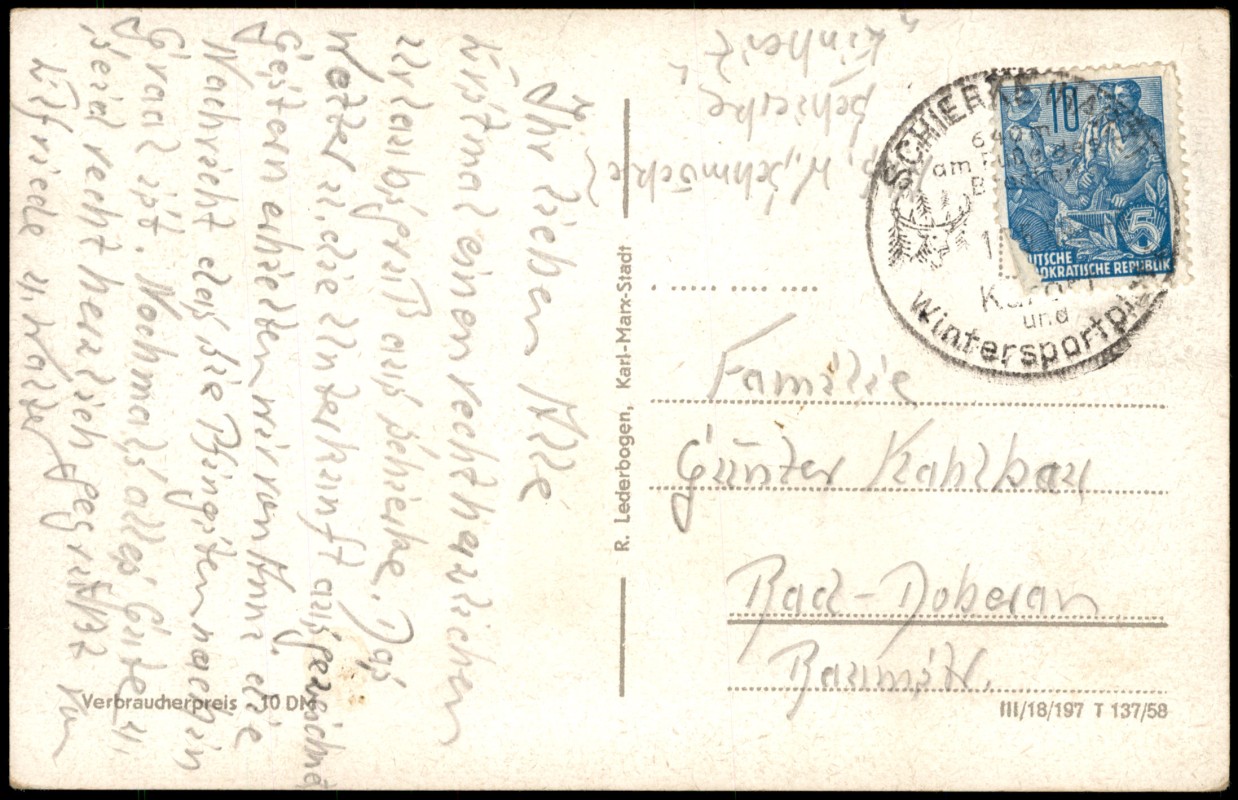 Ihr lieben Alle
Erstmal einen recht herzlichen
Urlaubsgruß aus Schierke. Das
Wetter u. die Unterkunft ausgezeichnet
Gestern erhielten wir von Anne die
Nachricht das Sie Pfingsten nach in
Graal ist. Nochmals alles Gute u.
seid recht herzlich gegrüßt von
Elfriede u.
W. Schmöcke
Schierke
"Einheit"
SCHIERKE
640 m
am Fuße des
Kurort
und
Wintersportpl
10
5
DEUTSCHE
DEMOKRATISCHE REPUBLIK
Familie
Günter Kahlbau
Bad-Doberan
Baumstr.
R. Lederbogen, Karl-Marx-Stadt
Verbraucherpreis 10 DM
III/18/197 T 137/58